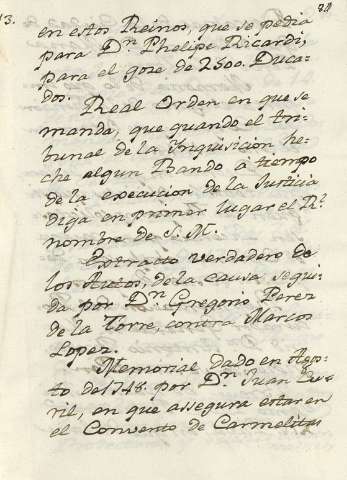 3.
en estos Reinos, que se pedia
para Dn. Phelipe Ricardi,
para el goze de 2500. Duca-
dos.
Real Orden en que se
manda, que quando el tri-
bunal de la Inquisicion he-
che algun Bando à tiempo
de la execucion de la Justicia
diga en primer lugar el Rl.
nombre de S. M.
Extracto verdadero de
los Autos, de la causa segui-
da por Dn. Gregorio Perez
de la Torre, contra Marcos
Lopez.
Memorial dado en Agos-
to de 1748. por Dn. Juan
en que assegura estar en
el Convento de Carmelitas